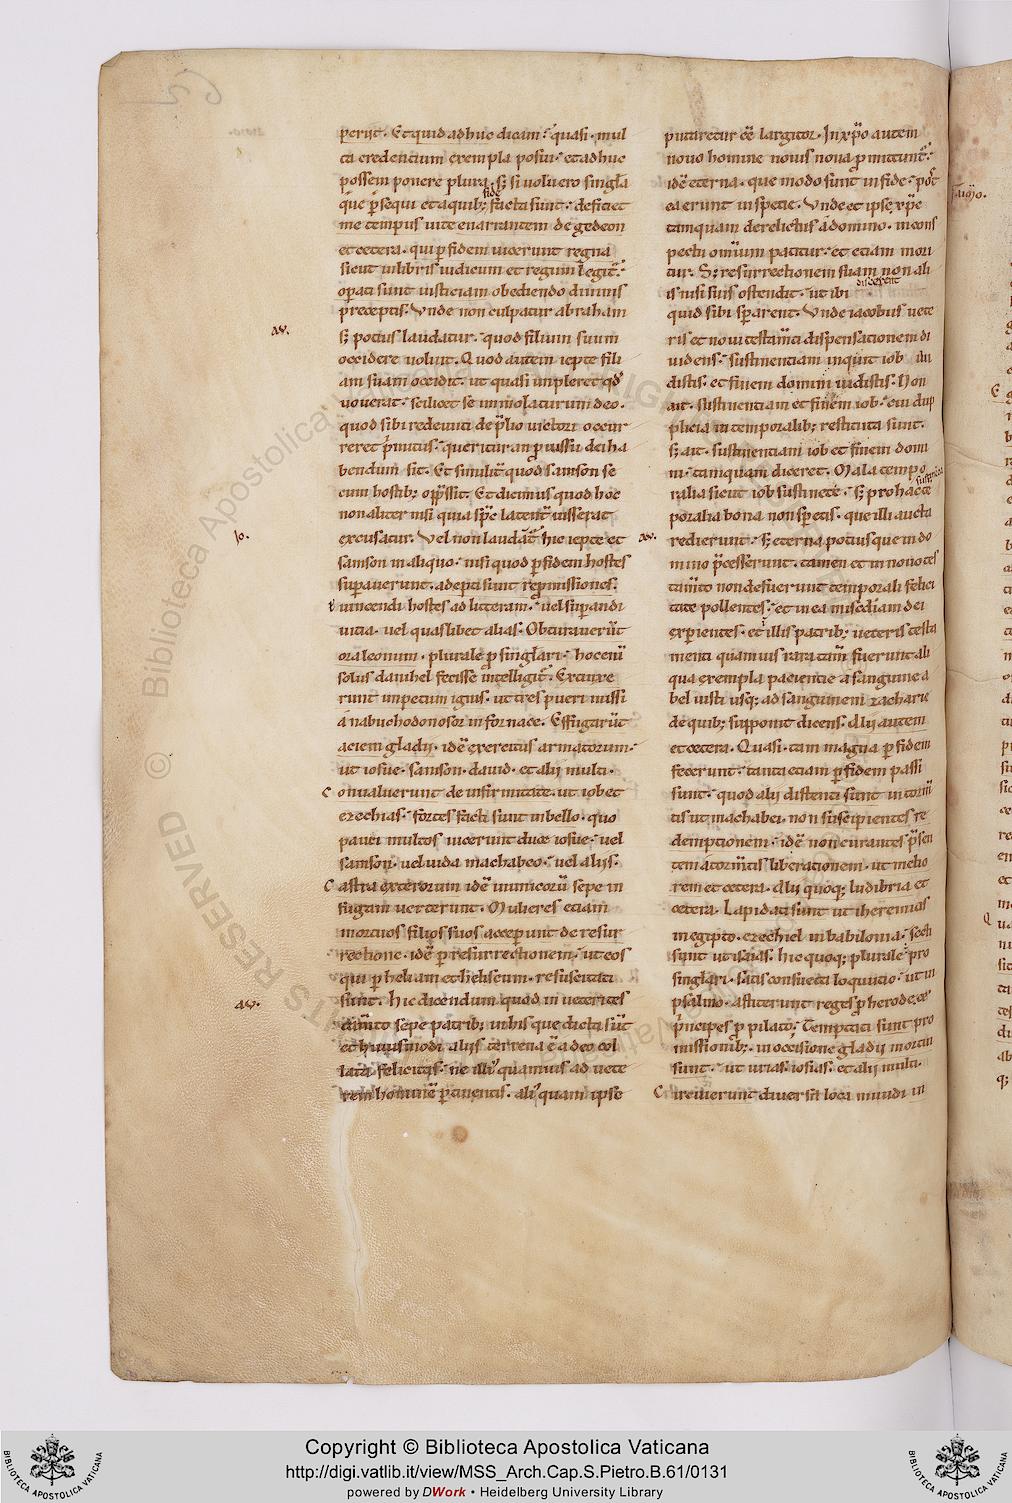 periit. Et quid adhuc dicam? quasi. mul
ta credentium exempla posui. et adhuc
possem ponere plura. sꝫ si voluero singl̄a
fidē
que ꝑsequi et a quibꝫ facta sunt. deficiet
me tempus uite enarrantem de gedeon
et cetera. qui ꝑ fidem uicerunt regna
sicut in libris iudicum et regum legit̃.
oꝑati sunt iusticiam obediendo diuinis
preceptis. Vnde non culpatur abraham
aꝰ.
sꝫ potius laudatur. quod filium suum
occidere uoluit. Quod autem iepte fili
am suam occidit. ut quasi impleret qd̓
uouerat. scilicet se immolaturum deo.
quod sibi redeunti de p̄lio uictori occur
reret primitus. queritur an pro iussu dei ha
bendum sit. Et similit̃ quod samson se
cum hostibꝫ opp̄ssit. Et dicimus quod hoc
non aliter nisi quia sp̄c latent̃ iusserat
Io.
excusatur. Vel non laudat̃ hic iepte et
samson in aliquo. nisi quod ꝑ fidem hostes
suꝑauerunt. adepti sunt repromissiones.
uincendi hostes ad litteram. uel suꝑandi
uitia. uel quaslibet alias. Obturauerūt
ora leonum. plurale ꝓ singlari. hoc enī
solus danihel fecisse intelligit̃. Extinxe
runt impetum ignis. ut tres pueri missi
a nabuchodonosor in fornace. Effugarūt
aciem gladii. idē exercitus armatorum.
ut iosue. samson. dauid. et alij multi.
Conualuerunt de infirmitate. ut iob et
ezechias. fortes facti sunt in bello. quo
pauci multos uicerunt duce iosue. uel
samson. uel iuda machabeo. uel aliis.
Castra exterorum idē inimicorū sepe in
fugam uerterunt. Mulieres etiam
mortuos filios suos acceꝑunt de resur
rectione. idē ꝑ resurrectionem. ut eos
qui ꝑ heliam et heliseum. resuscitati
aꝰ.
sunt. Hic dicendum quod in ueteri tes
tamento sepe patribꝫ in his que dicta sūt
et huiusmodi aliis terrena ē a deo col
lata felicitas. ne illi quamuis ad uete
rem hominē ꝑtinentis. alius quam ipse
putaretur eē largitor. In xp̄o autem
nouo homine nouis noua ꝓmittunt̃.
idē eterna. que modo sunt in fide. post
ea erunt in specie. Vnde et ipse xp̄c
tamquam derelictus a domino. in cons
pectu omnium patitur. et etiam mori
tur. Sꝫ resurrectionem suam non ali
is nisi suis ostendit. ut ibi discerent
quid sibi sꝑarent. Vnde iacobus uete
ris et noui testam̄ti dispensationem di
uidens. sustinentiam inquit iob au
distis. et finem domini uidistis. Non
ait. sustinentiam et finem iob. cui dup
plicia in temporalibꝫ restituta sunt.
sꝫ ait. sustinentiam iob et finem domi
ni. tamquam diceret. Mala tempo
ralia sicut iob sustinete. sꝫ pro hac
poralia bona non speretis. que illi aucta
aꝰ.
redierunt. sꝫ eterna potius que in do
mino p̄cesserunt. tamen et in nouo tes
tam̄to non defuerunt temporali felici
tate pollentes. et in ea misc̄diam dei
experientes. et illis patribꝫ ueteris testa
menti quamuis rara tam̄ fuerunt ali
qua exempla pacientie a sanguine a
bel iusti usqꝫ ad sanguinem zacharie
de quibꝫ supponit dicens. Alij autem
et cetera. Quasi. tam magna ꝑ fidem
fecerunt. tanta etiam ꝑ fidem passi
sunt. quod alij distenti sunt in torm̄
tis ut machabei. non suscipientes re
demptionem. idē non curantes p̄sen
tem a torm̄tis liberationem. ut melio
rem et cetera. Alij quoqꝫ ludibria et
cetera. Lapidati sunt ut iheremias
in egipto. ezechiel in babilonia. secti
sunt ut isaias. hic quoqꝫ plurale pro
singlari. satis consueta loquutio. ut in
psalmo. astiterunt reges ꝓ herode. et
p̄ncipes ꝓ pilato. Temptati sunt pro
missionibꝫ. in occisione gladii mortui
sunt. ut urias. iosias. et alij multi.
Circuierunt diuersa loca mundi in
Copyright © Biblioteca Apostolica Vaticana
http://digi.vatlib.it/view/MSS_Arch.Cap.S.Pietro.B.61/0131
powered by DWork • Heidelberg University Library